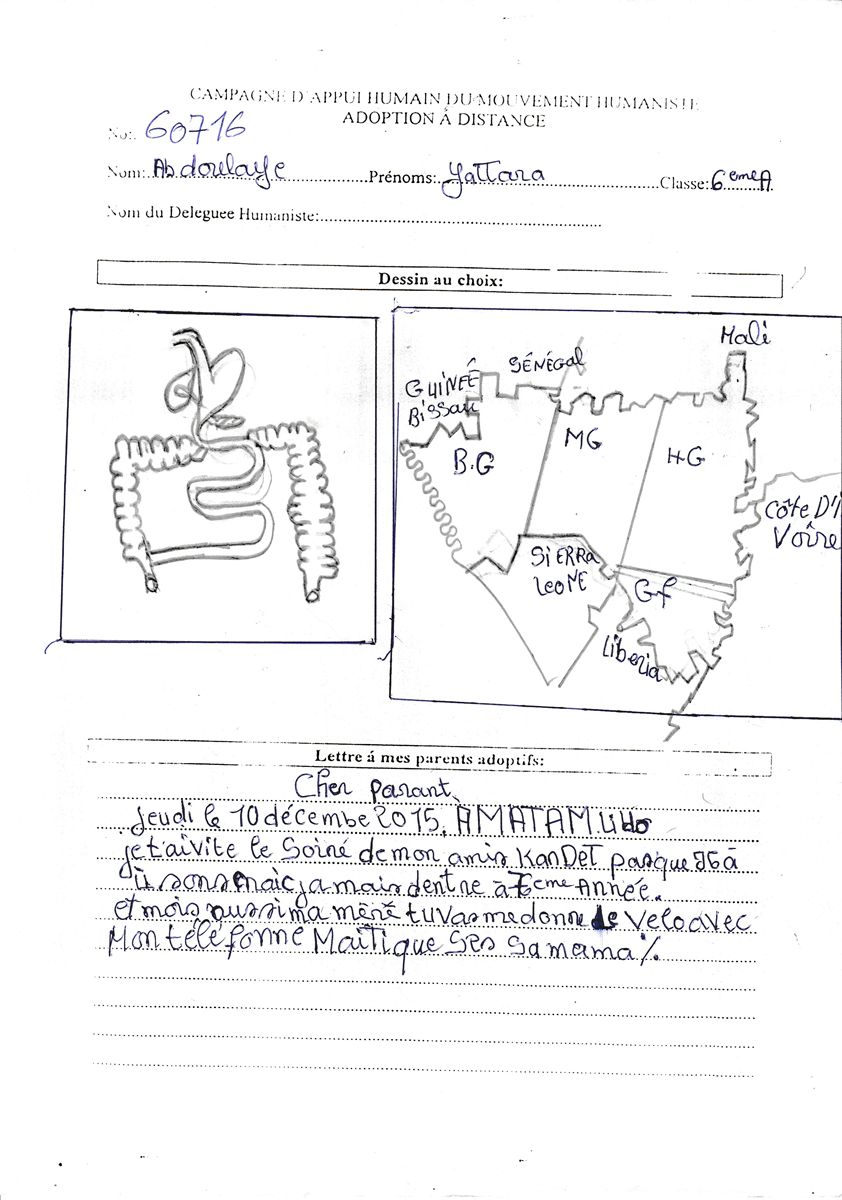 CAMPAGNE D'APPUI HUMAIN DU MOUVEMENT HUMANISTE
ADOPTION À DISTANCE
No: 60716
Nom: Abdoulaye Prénoms: Yattara Classe: 6ème A
Nom du Deleguee Humaniste:
Dessin au choix:
Mali
SÉNÉGAl
GUiNÉÉ
BiSSau
MG
H.G
B.G
CÔTE D'I
VOire
SiERRA
LeoNE
G.f
Liberia
Lettre á mes parents adoptifs:
Cher parant,
jeudi le 10 décembre 2015, ÀMATAM
jetaivite le Soiné de mon amis KanDET parque
jamais dentre à 7ème Année.
et mois aussi ma mère tu vas me donne le Velo avec
Mon téléfonne MaiTique Ses Samama%